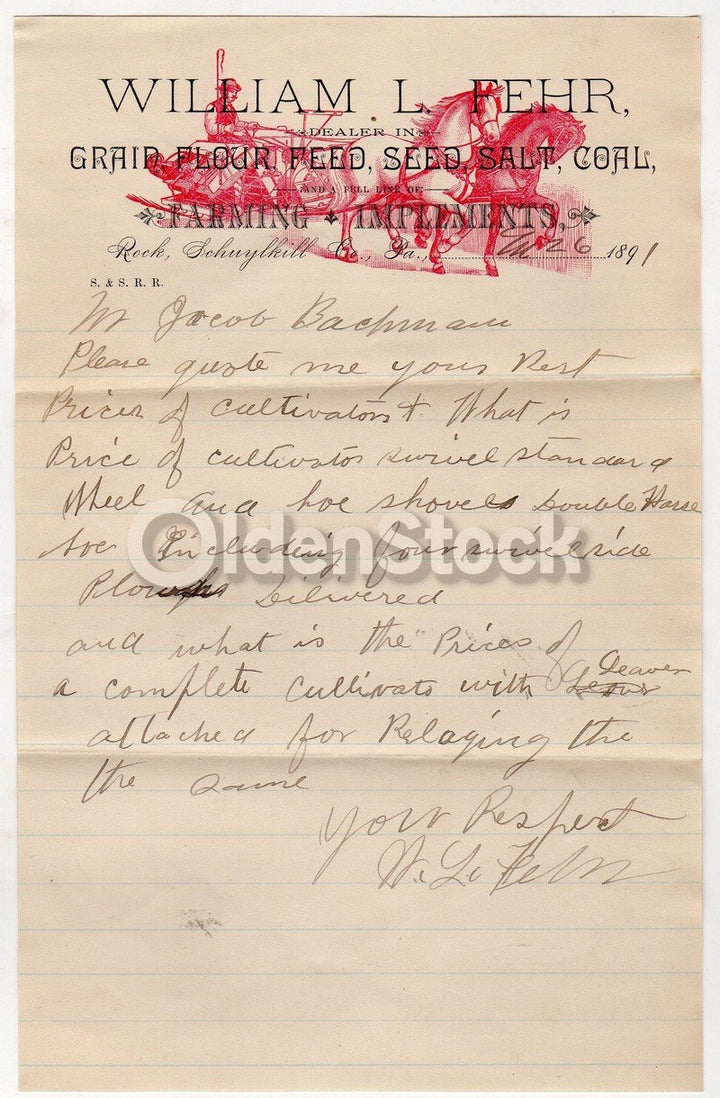 WILLIAM L. FEHR,
DEALER IN
GRAIN, FLOUR, FEED, SEED, SALT, COAL,
AND A FULL LINE OF
FARMING IMPLEMENTS,
Rock, Schuylkill Co., Pa., 26 1891
S. & S. R. R.
Mr Jacob Bachman
Please quote me your Best
Prices of cultivators & What is
Price of cultivator swivel standard
Wheel and hoe shovels Double Horse
hoe Including four swivel side
Plows Delivered
and what is the Prices of
a complete Cultivato with Leaver
attached for Relaging the
the same
Your Respect
W. L. Fehr
OldenStock